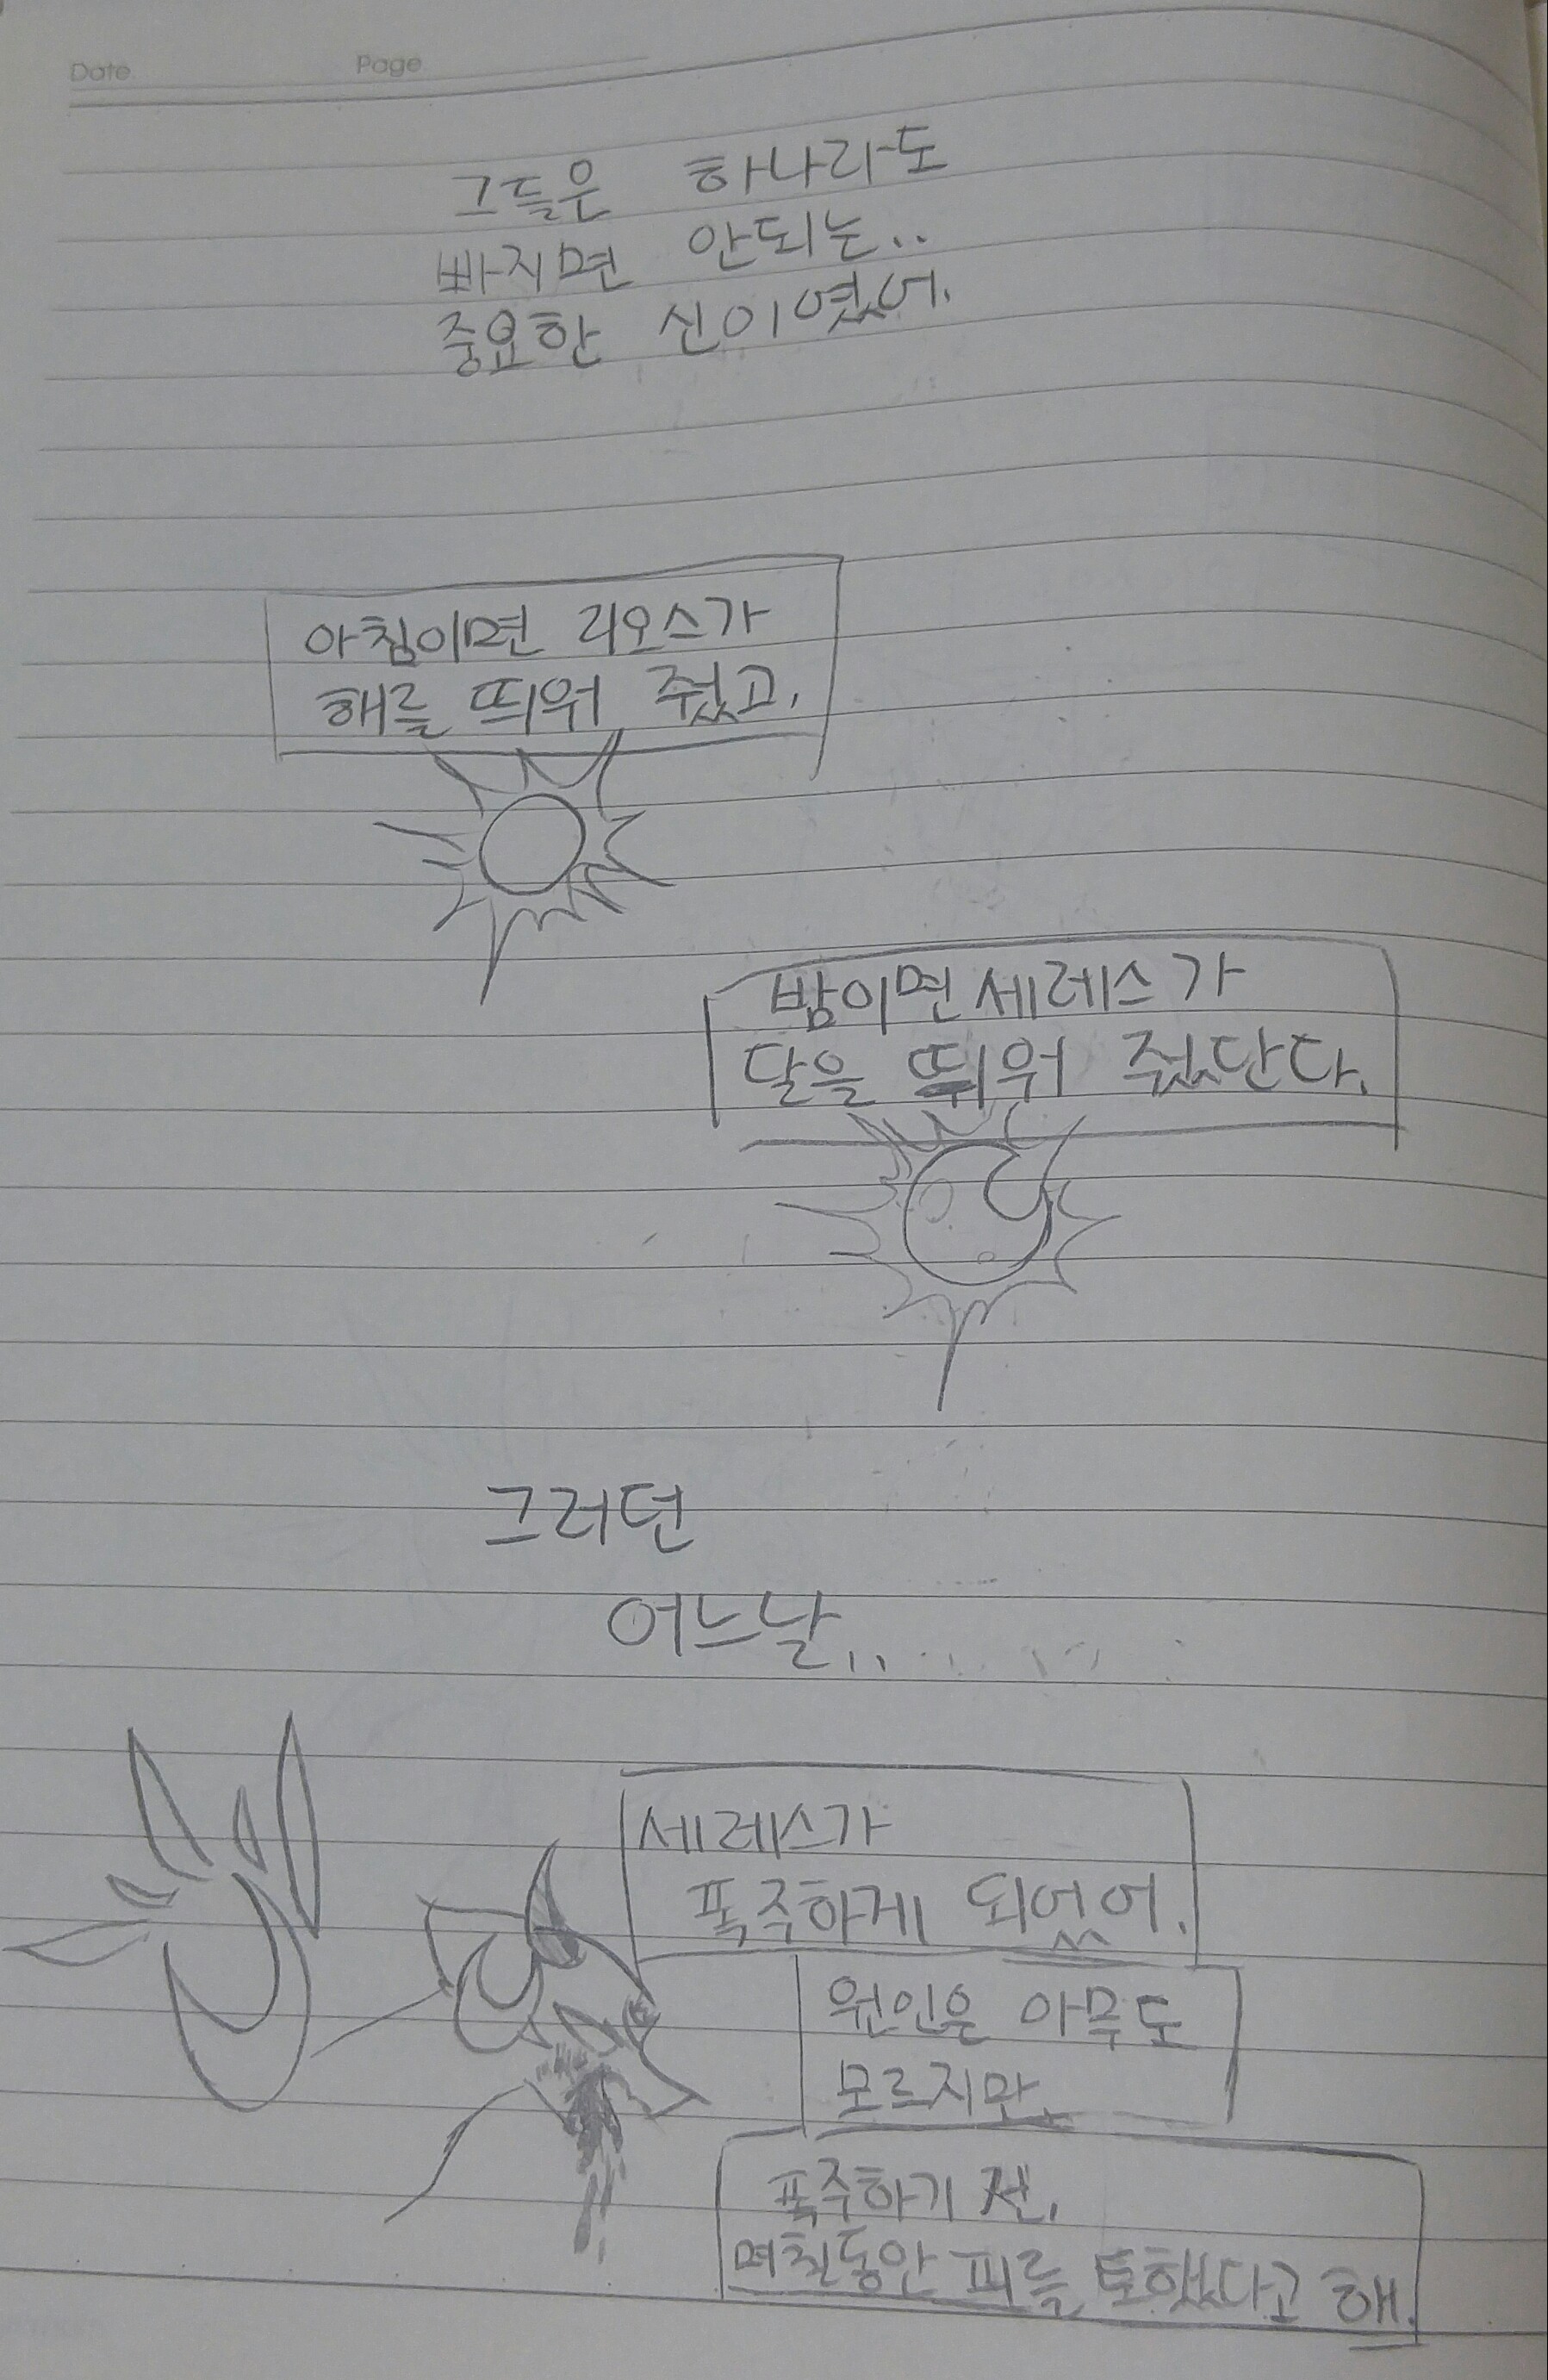 Date Page
그들은 하나라도
빠지면 안되는..
중요한 신이였어.
아침이면 리오스가
해를 띄워 줬고,
밤이면 세레스가
달을 띄워 줬단다.
그러던
어느날..
세레스가
폭주하게 되었어.
원인은 아무도
모르지만,
폭주하기 전,
며칠동안 피를 토했다고 해.